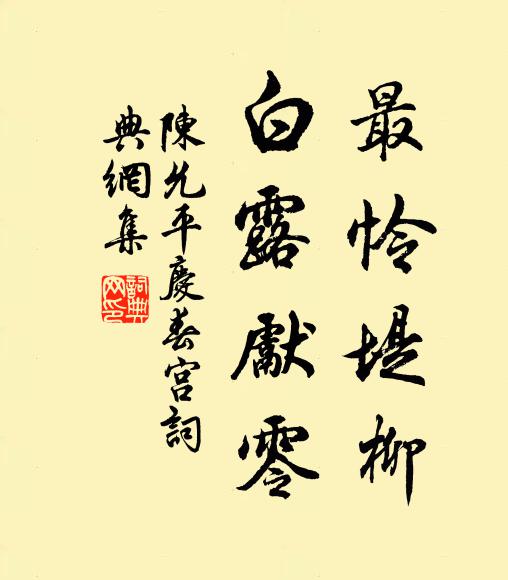 最怜堤柳
白露獻零
陳允平慶春宫詞
典網集
詞典网印